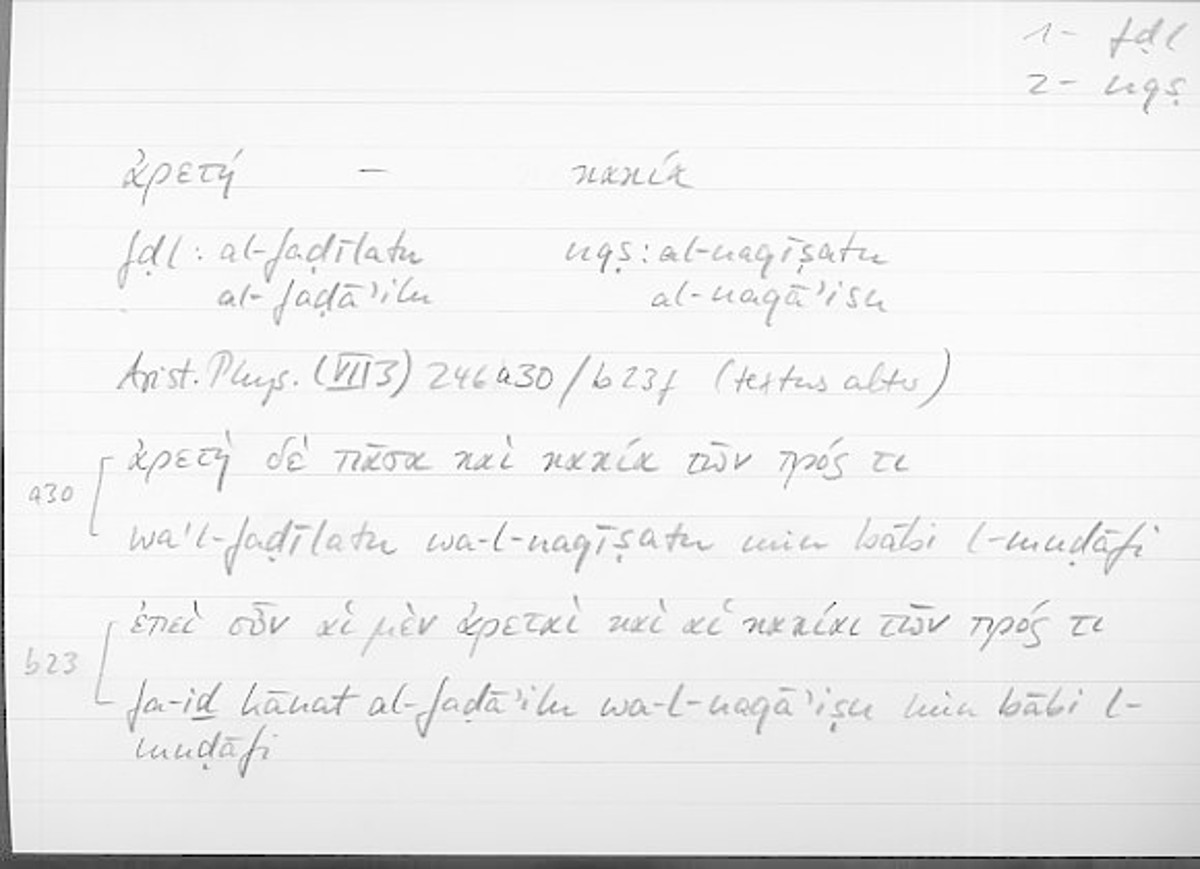 1- fḍl
2- nqṣ
ἀρετή — κακία
fḍl: al-faḍīlatu nqṣ: al-naqīṣatu
al-faḍā'ilu al-naqā'isu
Arist. Phys. (VII 3) 246 a30 / b 23f (textus alter)
a30 ἀρετὴ δὲ πᾶσα καὶ κακία τῶν πρός τι
wa'l-faḍīlatu wa-l-naqīṣatu min bābi l-muḍāfi
b23 ἐπεὶ οὖν αἱ μὲν ἀρεταὶ καὶ αἱ κακίαι τῶν πρός τι
fa-iḏ kānat al-faḍā'ilu wa-l-naqā'iṣu min bābi l-
muḍāfi